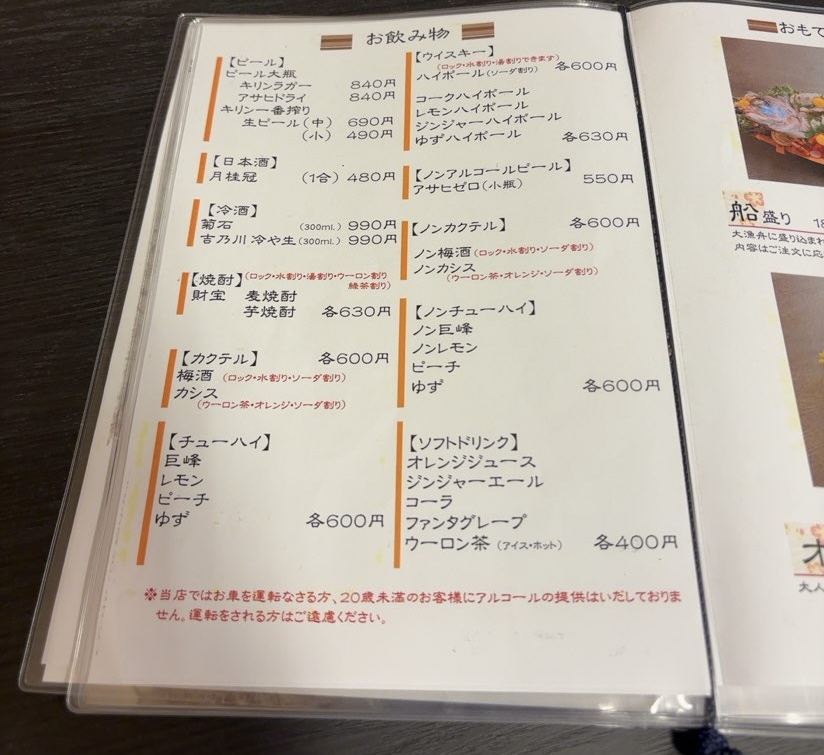 お飲み物
【ビール】
ビール大瓶
キリンラガー 840円
アサヒドライ 840円
キリン一番搾り
生ビール(中) 690円
(小) 490円
【日本酒】
月桂冠 (1合) 480円
【冷酒】
菊石 (300ml.) 990円
吉乃川 冷や生(300ml.) 990円
【焼酎】(ロック・水割り・湯割り・ウーロン割り
緑茶割り)
財宝 麦焼酎
芋焼酎 各630円
【カクテル】 各600円
梅酒 (ロック・水割り・ソーダ割り)
カシス
(ウーロン茶・オレンジ・ソーダ割り)
【チューハイ】
巨峰
レモン
ピーチ
ゆず 各600円
【ウイスキー】
(ロック・水割り・湯割りできます)
ハイボール(ソーダ割り) 各600円
コークハイボール
レモンハイボール
ジンジャーハイボール
ゆずハイボール 各630円
【ノンアルコールビール】
アサヒゼロ(小瓶) 550円
【ノンカクテル】 各600円
ノン梅酒(ロック・水割り・ソーダ割り)
ノンカシス
(ウーロン茶・オレンジ・ソーダ割り)
【ノンチューハイ】
ノン巨峰
ノンレモン
ピーチ
ゆず 各600円
【ソフトドリンク】
オレンジジュース
ジンジャーエール
コーラ
ファンタグレープ
ウーロン茶(アイス・ホット) 各400円
※当店ではお車を運転なさる方、20歳未満のお客様にアルコールの提供はいだしておりま
せん。運転をされる方はご遠慮ください。
おもて
船盛り 18
大漁舟に盛り込まれ
内容はご注文に応
大人